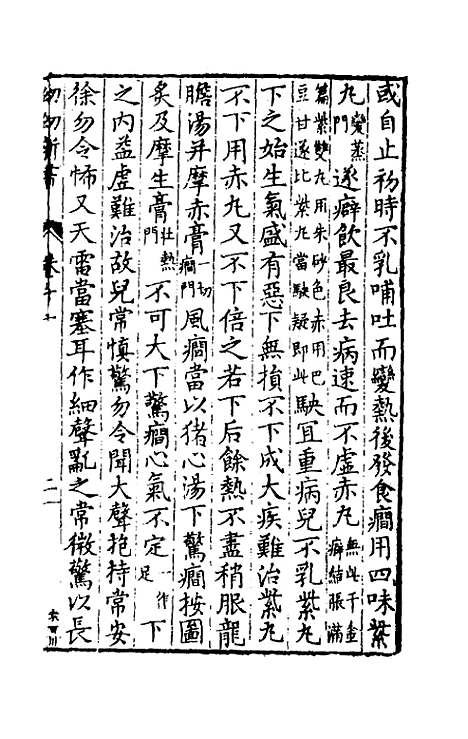 或自止初時不乳哺吐而變熱後發食癎用四味紫
丸變蒸門逐癖飲最良去病速而不虛赤丸無此千金癖結脹滿
篇紫雙丸用朱砂色赤用巴豆甘遂比紫丸當駃疑即此駃宜重病兒不乳紫丸
下之始生氣盛有惡下無損不下成大疾難治紫丸
不下用赤丸又不下倍之若下后餘熱不盡稍服龍
膽湯并摩赤膏一切癎門風癎當以猪心湯下驚癎按圖
炙及摩生膏壯熱門不可大下驚癎心氣不定一作足下
之内益虛難治故兒常慎驚勿令聞大聲抱持常安
徐勿令怖又天雷當塞耳作細聲亂之常微驚以長
幼幼新書
卷十一
二一